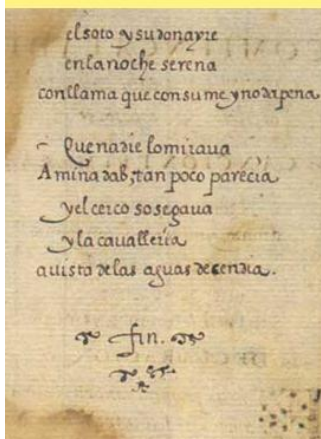 el soto y su donayre
en la noche serena
con llama que consume y no da pena
Que nadie lo mirava
Aminadab, tan poco parecia
y el cerco sosegava
y la cavalleria
a vista de las aguas decendia.
fin.